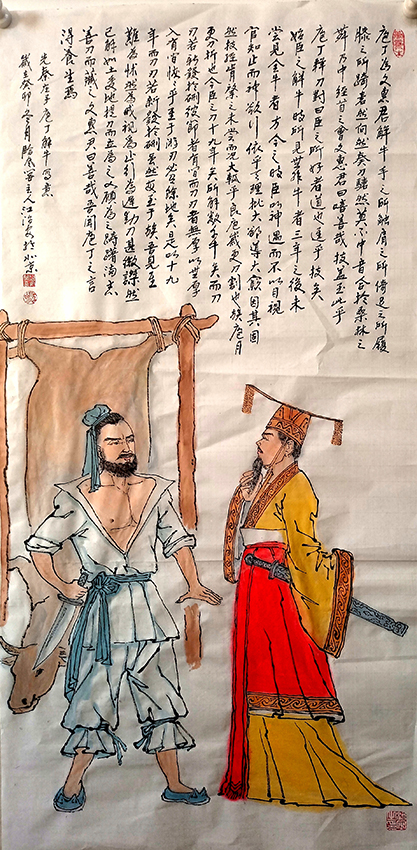 庖丁為文惠君解牛手之所觸肩之所倚足之所履
膝之所踦砉然向然奏刀騞然莫不中音合於桑林之
舞乃中經首之會文惠君曰嘻善哉技蓋至此乎
庖丁釋刀對曰臣之所好者道也進乎技矣
始臣之解牛時所見無非牛者三年之後未
嘗見全牛者方今之時臣以神遇而不以目視
官知止而神欲行依乎天理批大郤導大窾因其固
然技經肯綮之未嘗而況大軱乎良庖歲更刀割也族庖月
更刀折也今臣之刀十九年矣所解數千牛矣而刀
刃者若新發於硎彼節者有間而刀刃者無厚以無厚
入有間恢乎其於游刃必有餘地矣是以十九
年而刀刃者新發於硎雖然每至于族吾見其
難為怵然為戒視為止行為遲動刀甚微謋然
已解如土委地提刀而立為之四顧為之躊躇滿志
善刀而藏之文惠君曰善哉吾聞庖丁之言
得養生焉
先秦庄子庖丁解牛寫意
歲在癸卯冬月主人於北京